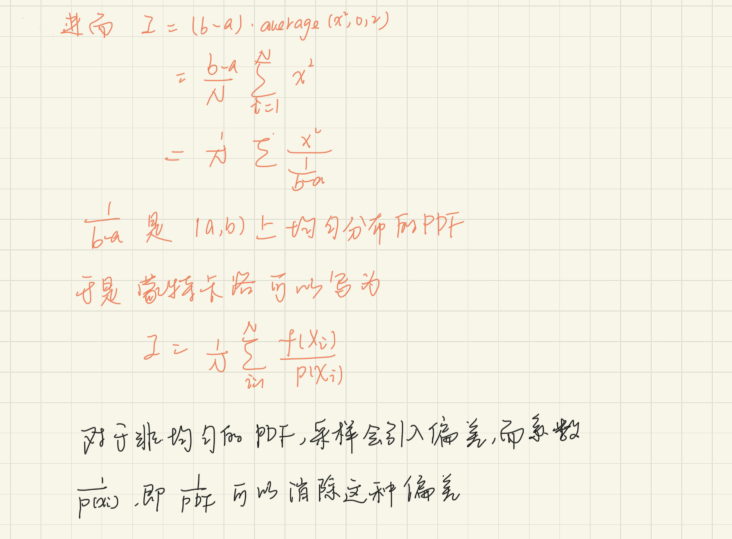 进而 I = (b-a)·average(x²,0,2)
= \frac{b-a}{N} \sum_{i=1}^{N} x²
= \frac{1}{N} Σ \frac{x²}{\frac{1}{b-a}}
\frac{1}{b-a} 是 (a,b) 上均匀分布的PDF
于是 蒙特卡洛 可以写为
I = \frac{1}{N} \sum_{i=1}^{N} \frac{f(X_i)}{p(X_i)}
对于非均匀的 PDF,采样会引入偏差,而系数
\frac{1}{p(x_i)},即 \frac{1}{pdf} 可以消除这种偏差